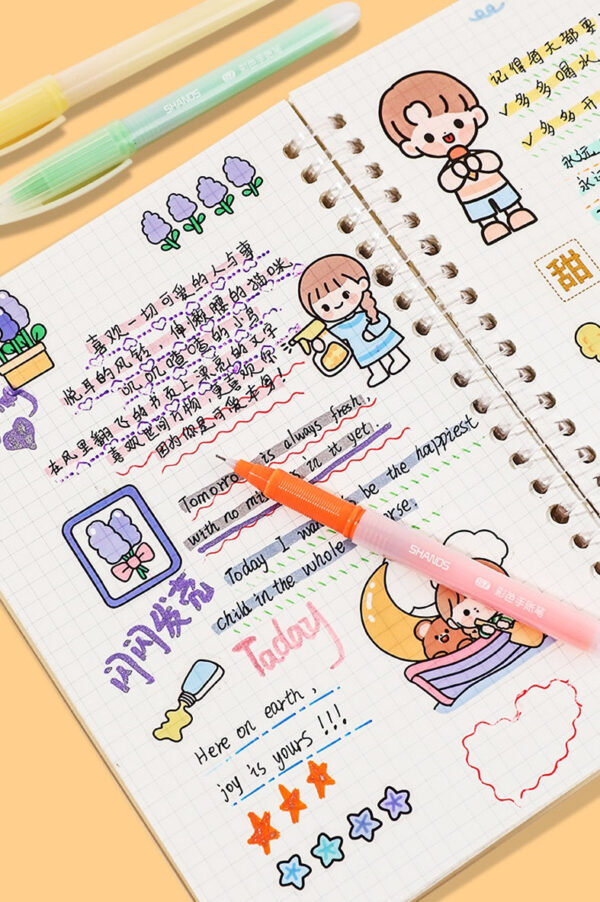 SHANDS
记得每天都要
✓多多喝水
✓多多开
永远
永远
甜
喜欢一切可爱的人与事
悦耳的风铃 伸懒腰的猫咪
叽叽喳喳的小鸟
在风里翻飞的书页上漂亮的文字
喜欢世间万物 更喜欢你
因为你是可爱本身!
Tomorro is always fresh,
with no in it yet.
Today I be the happiest
child in the whole
SHANDS 彩色手账笔
闪闪发亮
Taday
Here on earth,
joy is yours!!!